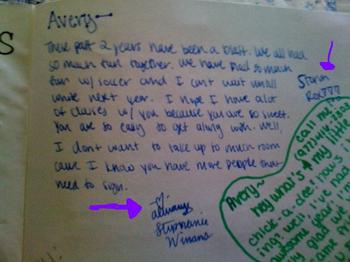 S
Avery~
These past 2 years have been a blast. We all had
so much fun together. We have had so much
fun w/ soccer and I cant wait until
next year. I hope I have alot
of classes w/ you because you are so sweet.
You are so easy to get along with. Well,
I don't want to take up to much room
cause I know you have more people that
need to sign.
always
Stephanie
Winans
Storm
Rox777
call me
Avery~
hey what's
my little
chick-a-dee!